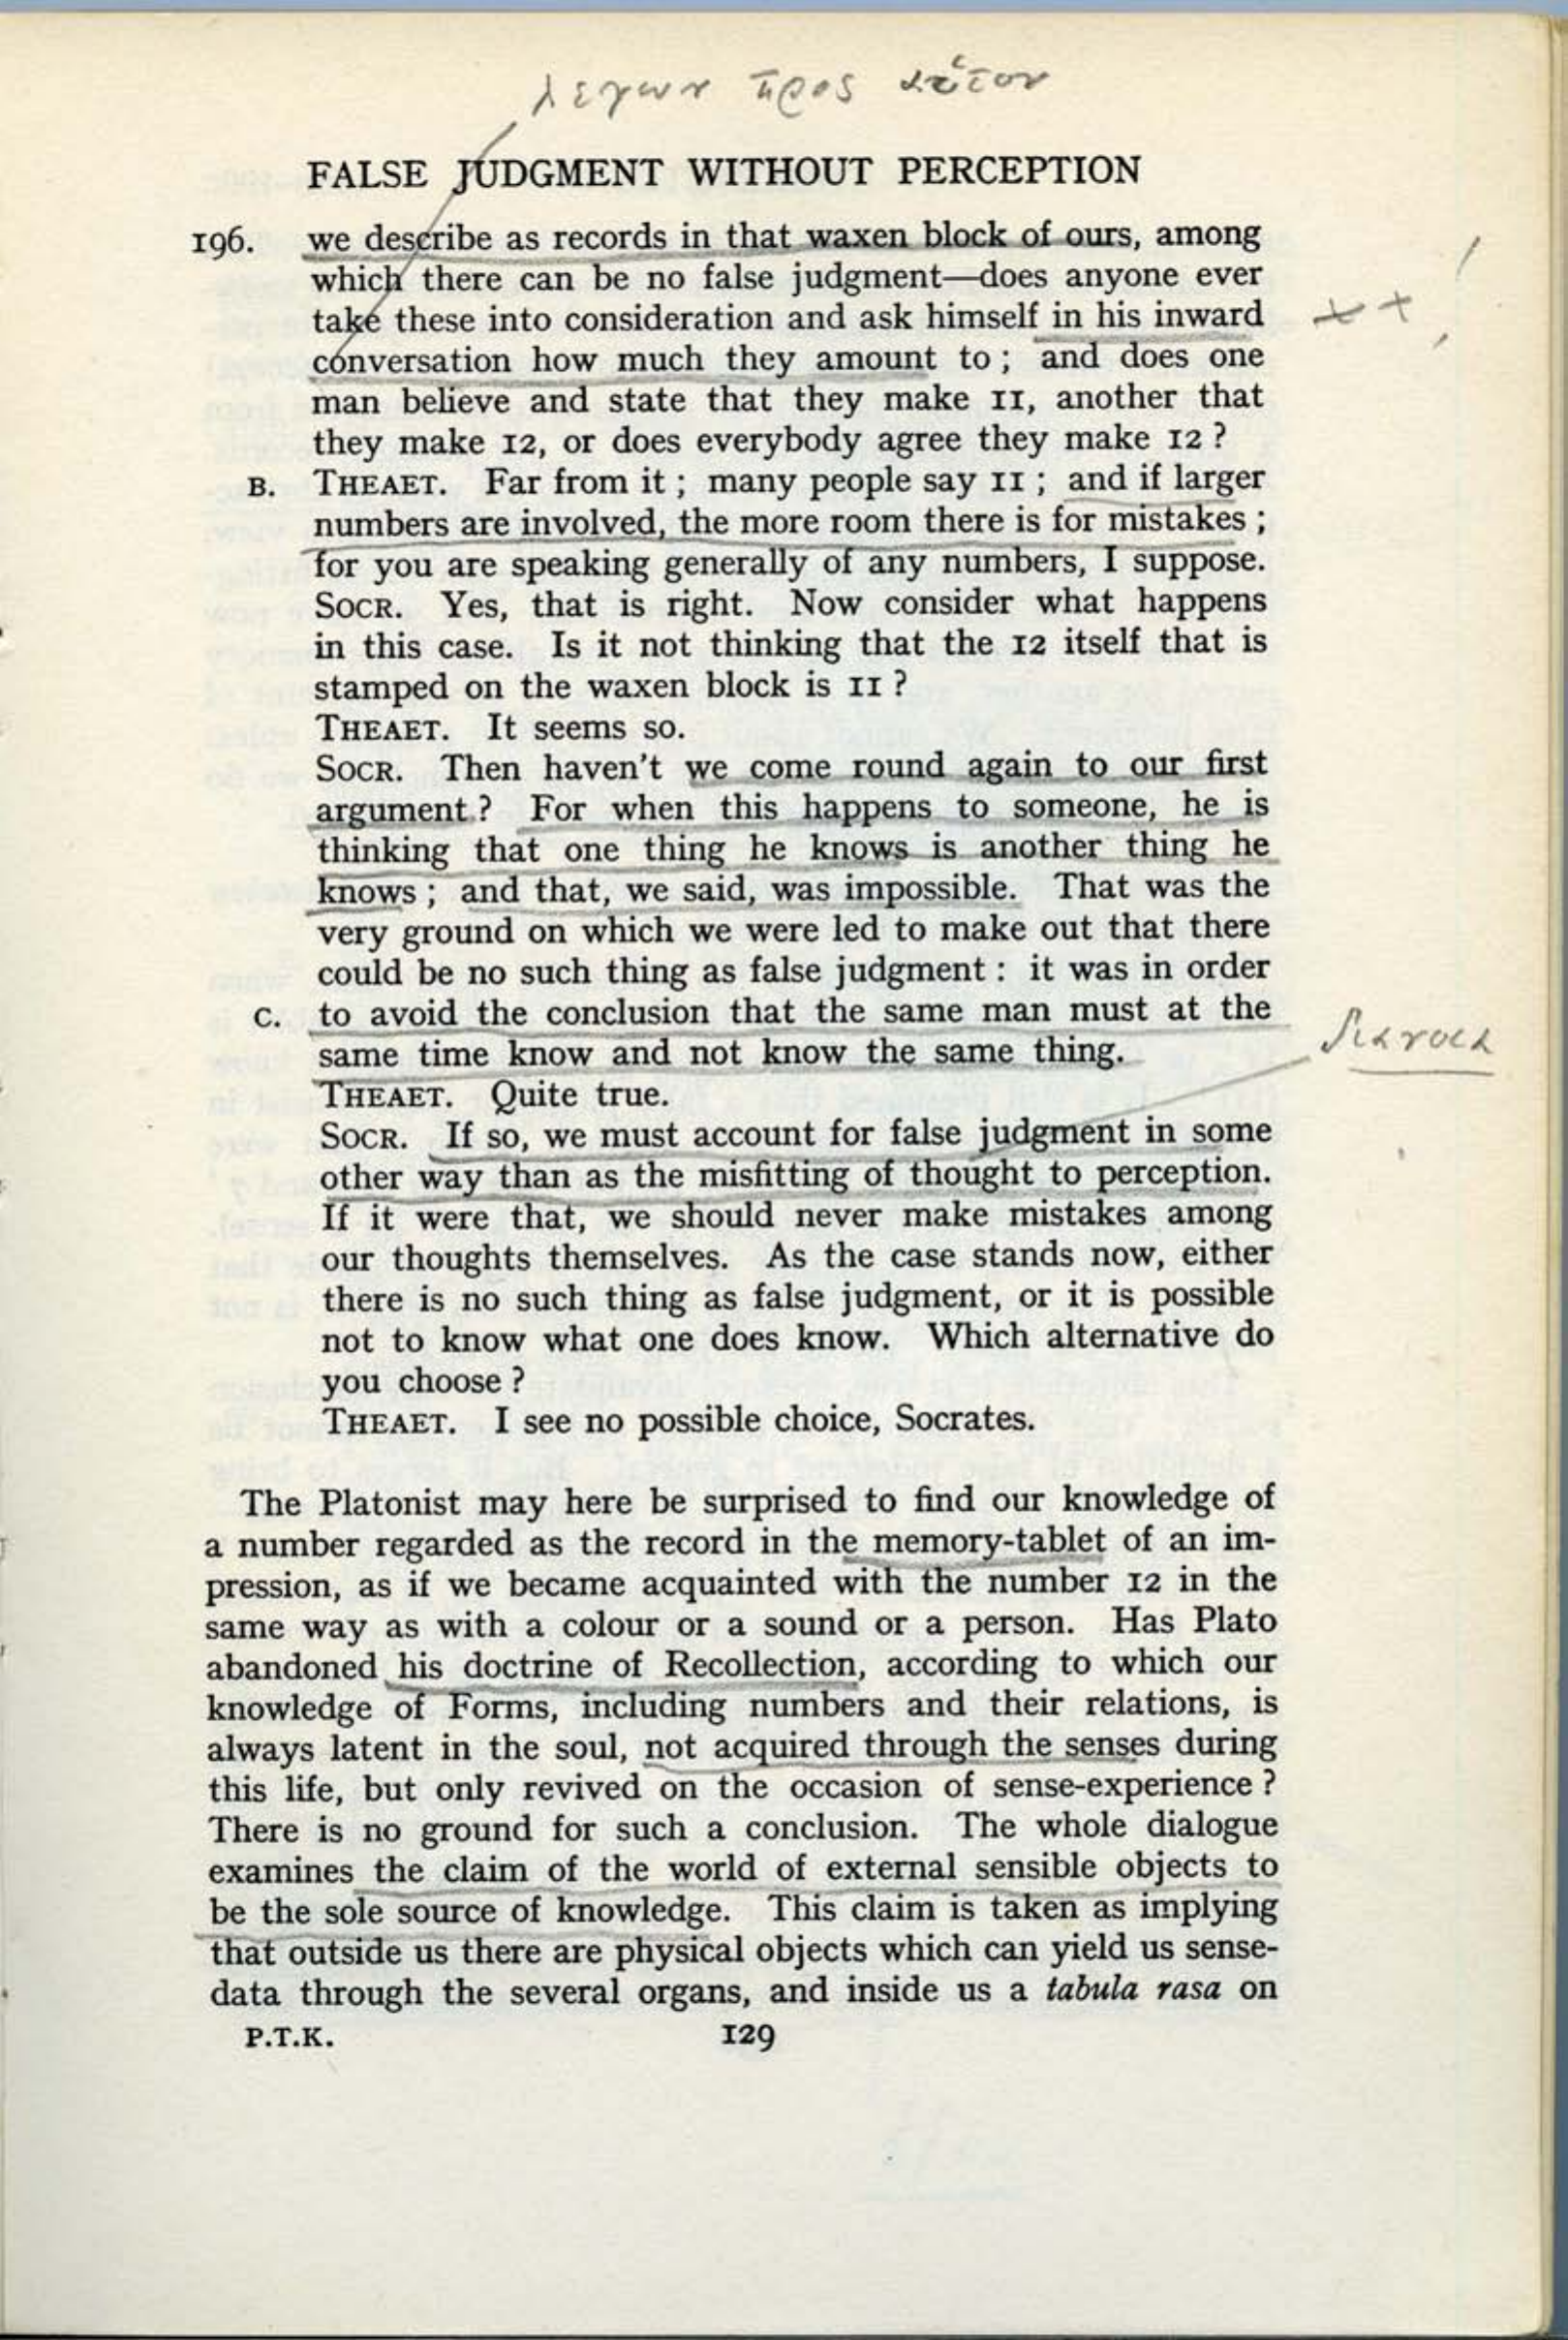 λεγων προς αὑτον
FALSE JUDGMENT WITHOUT PERCEPTION
196. we describe as records in that waxen block of ours, among
which there can be no false judgment—does anyone ever
take these into consideration and ask himself in his inward
conversation how much they amount to ; and does one
man believe and state that they make 11, another that
they make 12, or does everybody agree they make 12 ?
B. THEAET. Far from it ; many people say 11 ; and if larger
numbers are involved, the more room there is for mistakes ;
for you are speaking generally of any numbers, I suppose.
SOCR. Yes, that is right. Now consider what happens
in this case. Is it not thinking that the 12 itself that is
stamped on the waxen block is 11 ?
THEAET. It seems so.
SOCR. Then haven't we come round again to our first
argument ? For when this happens to someone, he is
thinking that one thing he knows is another thing he
knows ; and that, we said, was impossible. That was the
very ground on which we were led to make out that there
could be no such thing as false judgment : it was in order
C. to avoid the conclusion that the same man must at the
same time know and not know the same thing.
διανοια
THEAET. Quite true.
SOCR. If so, we must account for false judgment in some
other way than as the misfitting of thought to perception.
If it were that, we should never make mistakes among
our thoughts themselves. As the case stands now, either
there is no such thing as false judgment, or it is possible
not to know what one does know. Which alternative do
you choose ?
THEAET. I see no possible choice, Socrates.
The Platonist may here be surprised to find our knowledge of
a number regarded as the record in the memory-tablet of an im-
pression, as if we became acquainted with the number 12 in the
same way as with a colour or a sound or a person. Has Plato
abandoned his doctrine of Recollection, according to which our
knowledge of Forms, including numbers and their relations, is
always latent in the soul, not acquired through the senses during
this life, but only revived on the occasion of sense-experience ?
There is no ground for such a conclusion. The whole dialogue
examines the claim of the world of external sensible objects to
be the sole source of knowledge. This claim is taken as implying
that outside us there are physical objects which can yield us sense-
data through the several organs, and inside us a tabula rasa on
P.T.K. 129